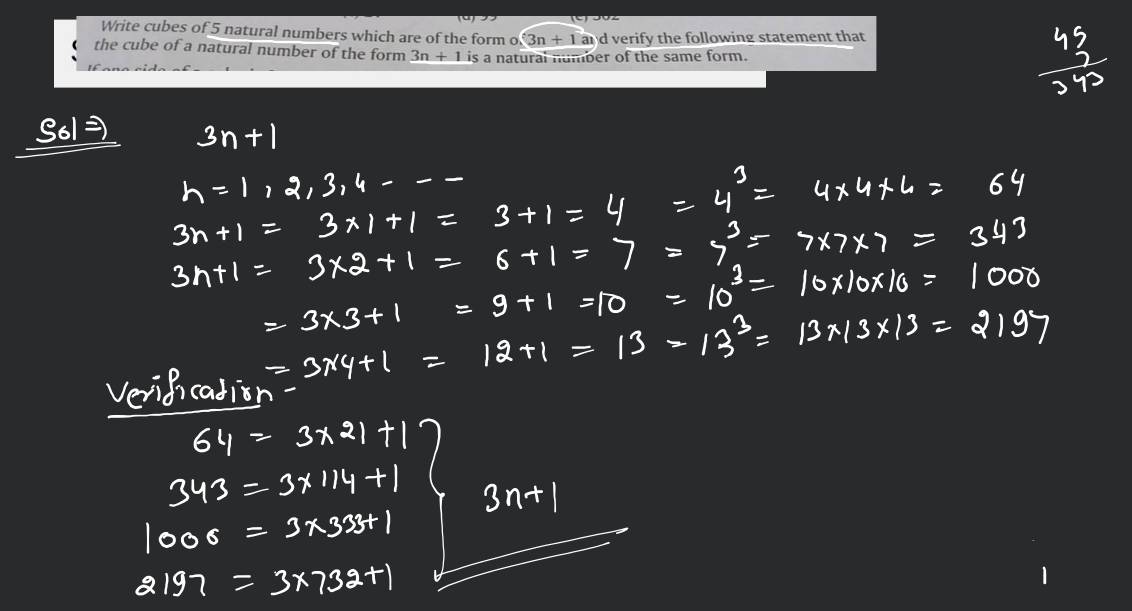 Write cubes of 5 natural numbers which are of the form of 3n + 1 and verify the following statement that
the cube of a natural number of the form 3n + 1 is a natural number of the same form.
49
7
343
Sol ⇒ 3n+1
n = 1, 2, 3, 4 - - -
3n+1 = 3×1+1 = 3+1 = 4 = 4³ = 4×4×4 = 64
3n+1 = 3×2+1 = 6+1 = 7 = 7³ = 7×7×7 = 343
= 3×3+1 = 9+1 =10 = 10³ = 10×10×10 = 1000
= 3×4+1 = 12+1 = 13 = 13³ = 13×13×13 = 2197
Verification -
64 = 3×21+1
343 = 3×114+1
3n+1
1000 = 3×333+1
2197 = 3×732+1
1